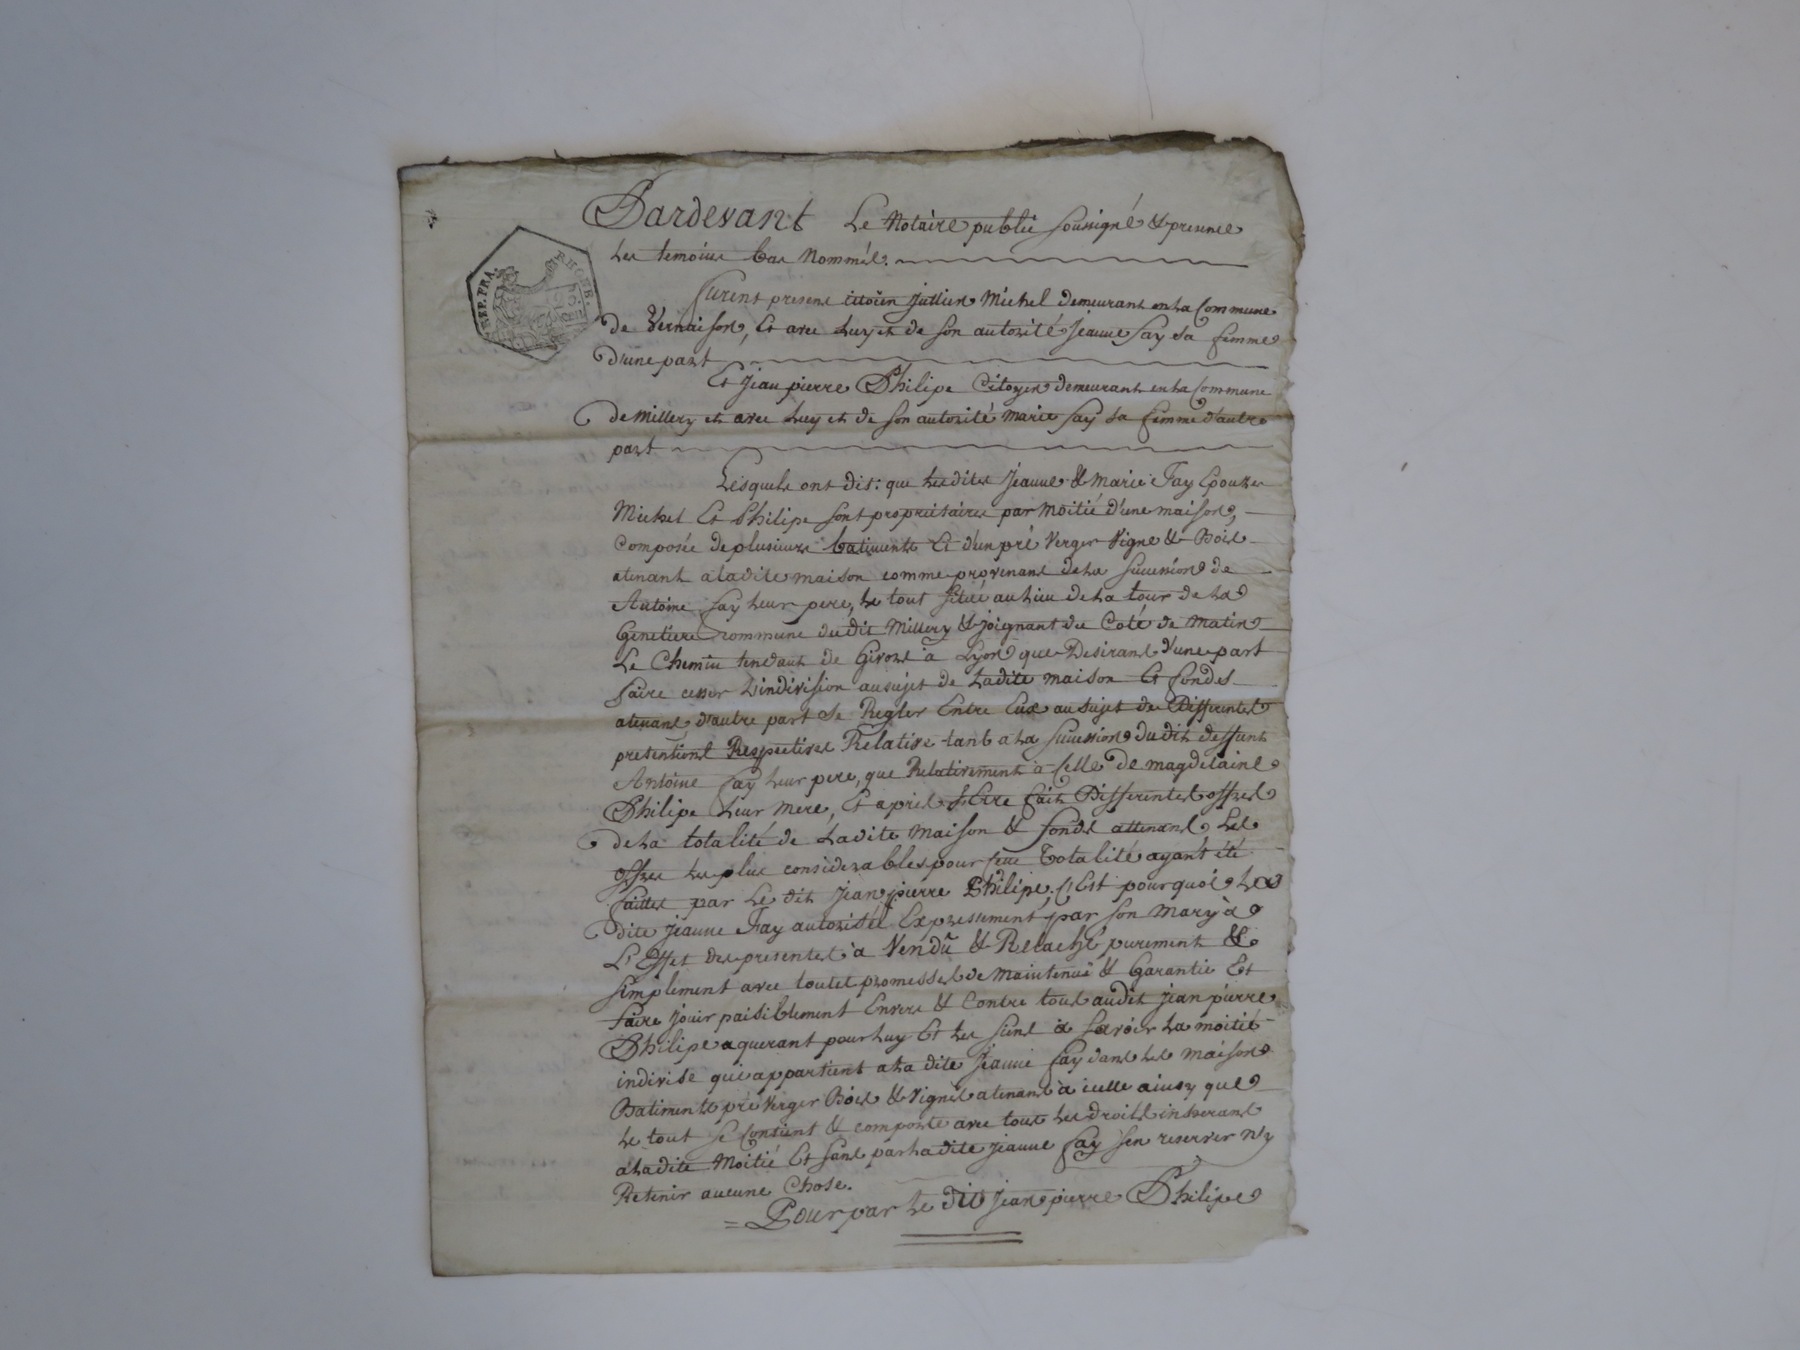 REP. FRA.
RHONE
Pardevant Le Notaire public soussigné & presence
Les temoins bas Nommés.
furent presens citoïen jullien Michel demeurant en la Commune
de Vernaison, Et avec Luy et de son autorité Jeanne fay sa femme
D'une part
Et Jean pierre Philipe Citoyen demeurant en la Commune
de Millery et avec Luy et de son autorité marie fay sa femme d'autre
part
Lesquels ont dit: que Lesdites Jeanne & marie Fay Epouzes
Michel Et Philipe sont proprietaires par moitié d'une maison,
Composée de plusieurs batiments Et d'un pré Verger Vigne & Bois
atenant a ladite maison comme provenant de La succession de
Antoine fay Leur pere, Le tout situé au Lieu de La tour de La
Genetiere commune du dit Millery & joignant du Coté de matin
Le Chemin tendant de Givors à Lyon que Desirant d'une part
faire cesser L'indivision au sujet de Ladite maison Et fondes
atenant, d'autre part se Regler Entre Eux au sujet de Differentes
pretentions Respectives Relative tant a La succession du dit deffunt
Antoine fay Leur pere, que Relativement à Celle de magdelaine
Philipe Leur mere, Et apres s'Etre fait Differentes offres
de La totalité de Ladite maison & fonds attenant, Les
offres Les plus considerables pour cette totalité ayant été
faittes par Le dit Jean pierre Philipe, C'Est pourquoi La
dite Jeanne Fay autorisée Expressement par son mary à
L'Effet des presentes à Vendû & Relaché purement &
simplement avec toutes promesses de maintenuë & Garantie Et
faire jouir paisiblement Envers & Contre tous audit Jean pierre
Philipe aquerant pour Luy Et Les siens à savoir La moitié
indivise qui appartient a La dite Jeanne fay dans Les maison
Batiments pré Verger Bois & Vignes atenant à icelle ainsy que
Le tout se Contient & comporte avec tous Les droits inherans
a Ladite Moitié Et sans par Ladite Jeanne fay s'en reserver n'y
Retenir aucune Chose.
= Pour par Le dit Jean pierre Philipe